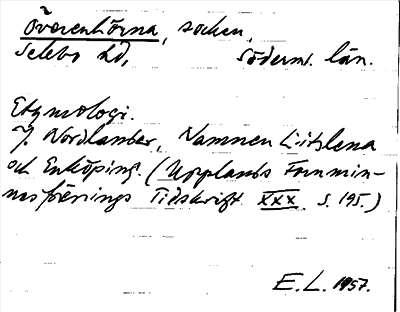 Överenhörna, socken,
Selebo hd, Söderm. län.
Etymologi.
J. Nordlander, Namnen Litslena
och Enköping. (Upplands Fornmin-
nesförenings Tidskrift XXX. S. 195.)
E. L. 1957.